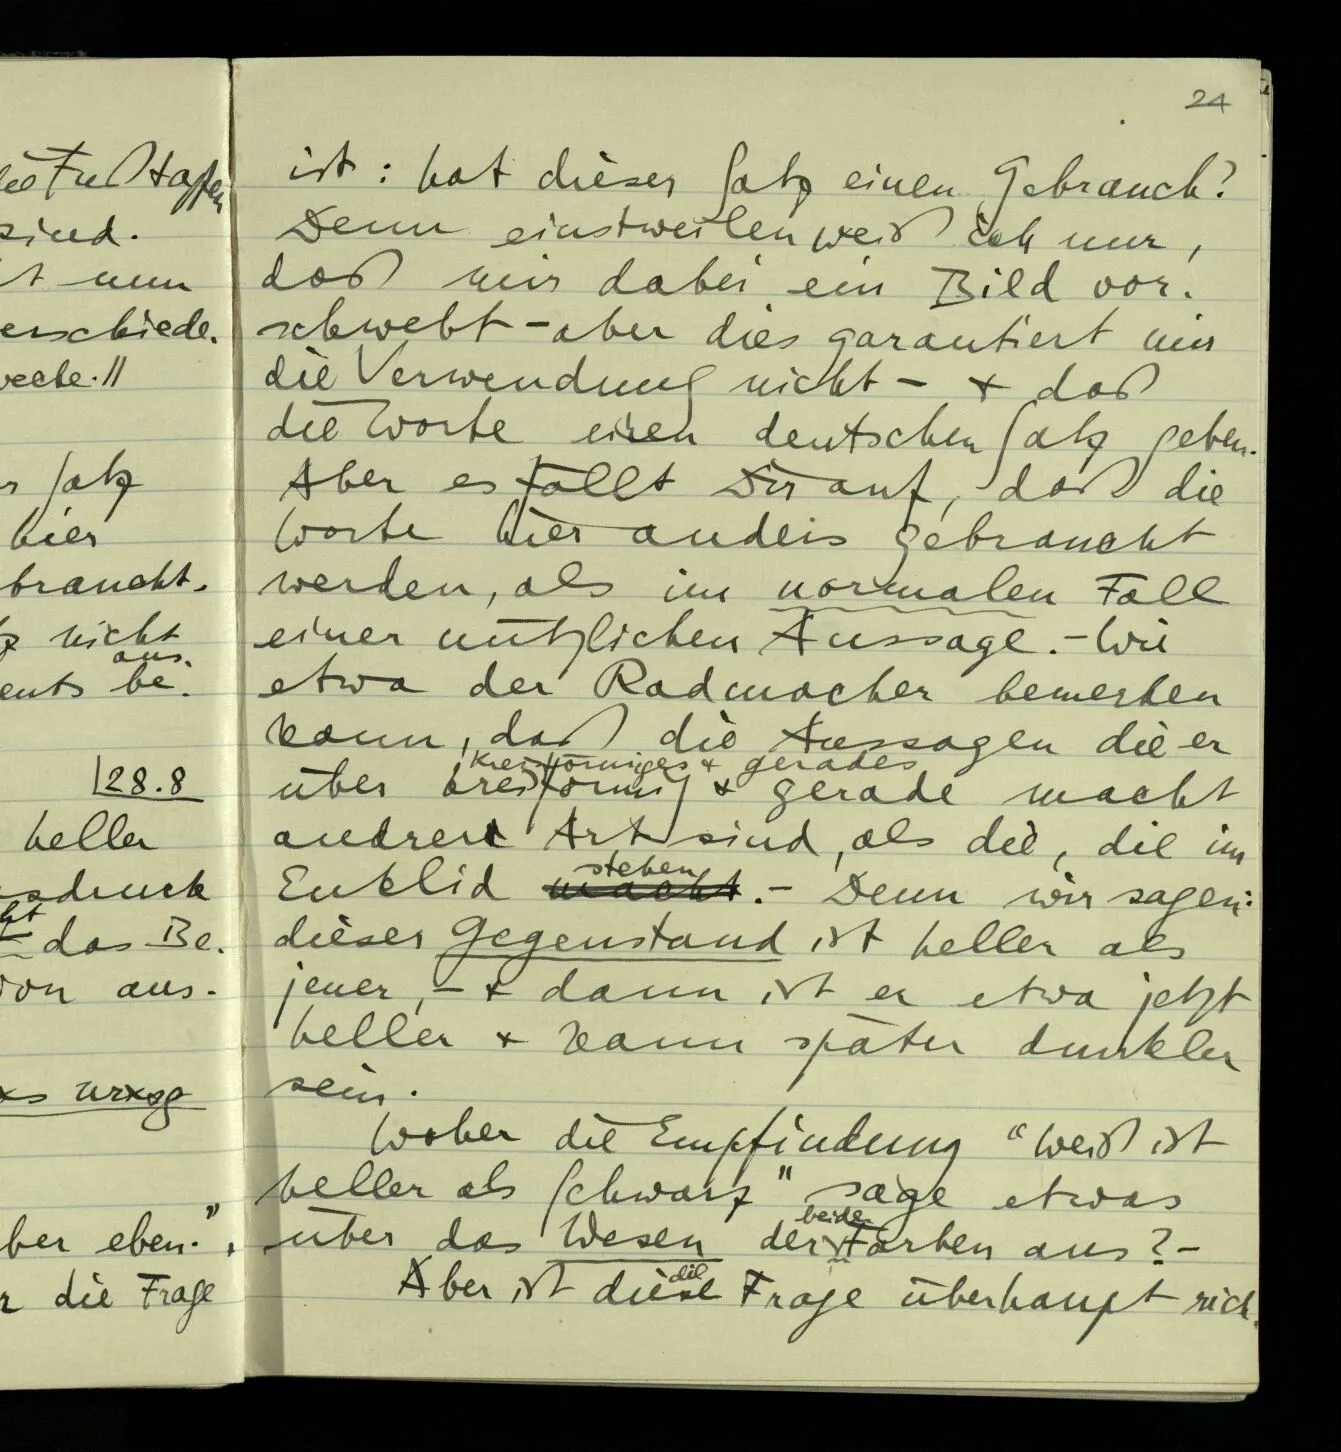 24
sind.
nun
erschiede.
Satz
hier
braucht.
nicht
aus.
be.
|28.8
heller
sdruck
das Be.
aus.
wrxsg
ber eben."
die Frage
ist: hat dieser Satz einen Gebrauch?
Denn einstweilen weiß ich nur,
daß mir dabei ein Bild vor-
schwebt – aber dies garantiert mir
die Verwendung nicht – + daß
die Worte einen deutschen Satz geben.
Aber es fällt Dir auf, daß die
Worte hier anders gebraucht
werden, als im normalen Fall
einer nützlichen Aussage. – Wie
etwa der Radmacher bemerken
kann, daß die Aussagen die er
Kreisförmiges + gerades
über kreisförmig + gerade macht
andrer Art sind, als die, die im
stehen
Euklid macht. – Denn wir sagen:
dieser Gegenstand ist heller als
jener, – + dann ist er etwa jetzt
heller + kann später dunkler
sein.
Woher die Empfindung “Weiß ist
heller als Schwarz” sage etwas
beide
über das Wesen der Farben aus? –
die
Aber ist diese Frage überhaupt rich.